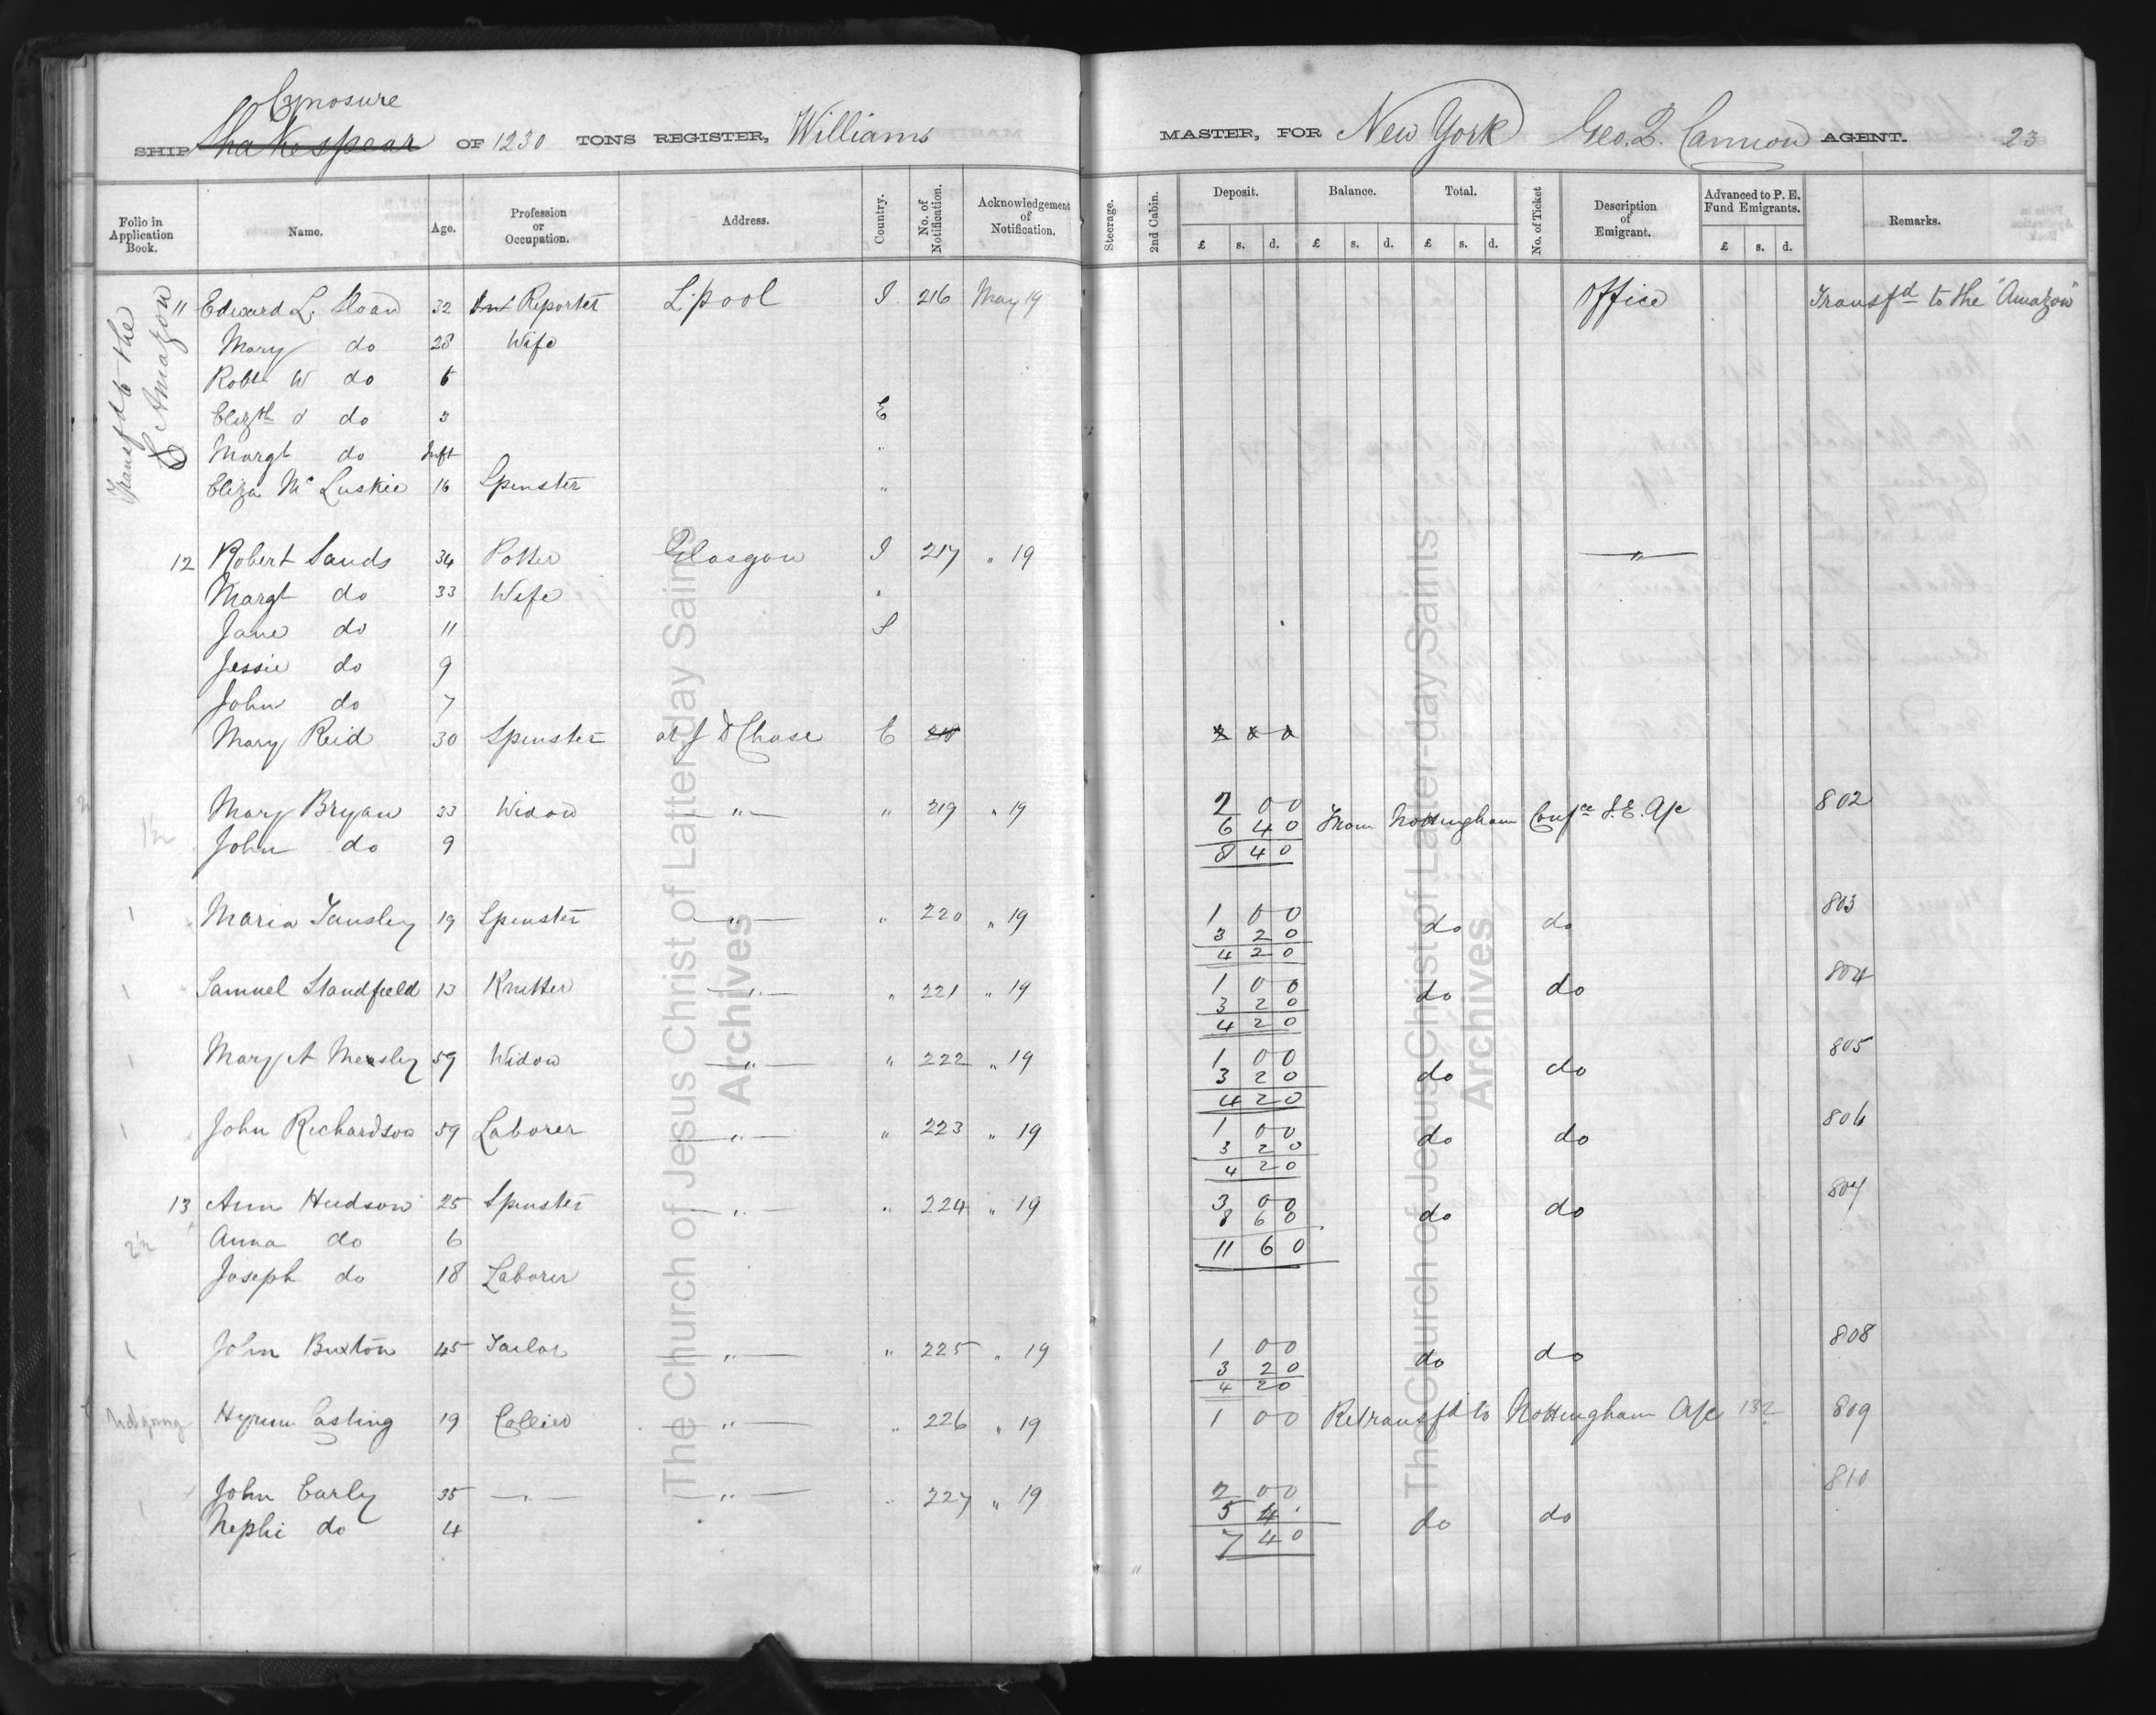 Cynosure
SHIP Shakespear OF 1230 TONS REGISTER, Williams MASTER, FOR New York Geo. Q. Cannon AGENT. 23
Folio in Application Book. Name. Age. Profession or Occupation. Address. Country. No. of Notification. Acknowledgement of Notification. Steerage. 2nd Cabin. Deposit. Balance. Total. No. of Ticket Description of Emigrant. Advanced to P. E. Fund Emigrants. Remarks.
£ s. d. £ s. d. £ s. d. £ s. d.
Transfd to the
S Amazon
11 Edward L. Sloan 32 Reporter L.pool I. 216 May 19 Office Transfd to the "Amazon"
Mary do 28 Wife
Robt W do 6
Elizth do 3 E
Margt do Inft "
Eliza Mc Luskie 16 Spinster "
12 Robert Sands 34 Potter Glasgow I 217 " 19 "
Margt do 33 Wife "
Jane do 11 S
Jessie do 9
John do 7
Mary Reid 30 Spinster at J D Chase E 218 2 0 0
Mary Bryan 33 Widow " " 219 " 19 2 0 0 802
1½ 6 4 0 From Nottingham Confce I.E. A/c
John do 9 8 4 0
1 Maria Tansley 19 Spinster " " 220 " 19 1 0 0 803
3 2 0 do do
4 2 0
1 Samuel Standfield 13 Knitter " " 221 " 19 1 0 0 804
3 2 0 do do
4 2 0
1 Mary A Mensley 59 Widow " " 222 " 19 1 0 0 805
3 2 0 do do
4 2 0
1 John Richardson 59 Laborer " " 223 " 19 1 0 0 806
3 2 0 do do
4 2 0
13 Ann Hudson 25 Spinster " " 224 " 19 3 0 0 807
8 6 0 do do
2½ Anna do 6 11 6 0
Joseph do 18 Laborer
1 John Buxton 45 Tailor " " 225 " 19 1 0 0 808
3 2 0 do do
4 2 0
Not going Hyrum Casling 19 Collier " " 226 " 19 1 0 0 Retransfd to Nottingham A/c 132 809
1 John Early 35 " " " 227 " 19 2 0 0 810
5 4 . do do
Nephi do 4 7 4 0
The Church of Jesus Christ of Latter-day Saints
Archives
The Church of Jesus Christ of Latter-day Saints
Archives